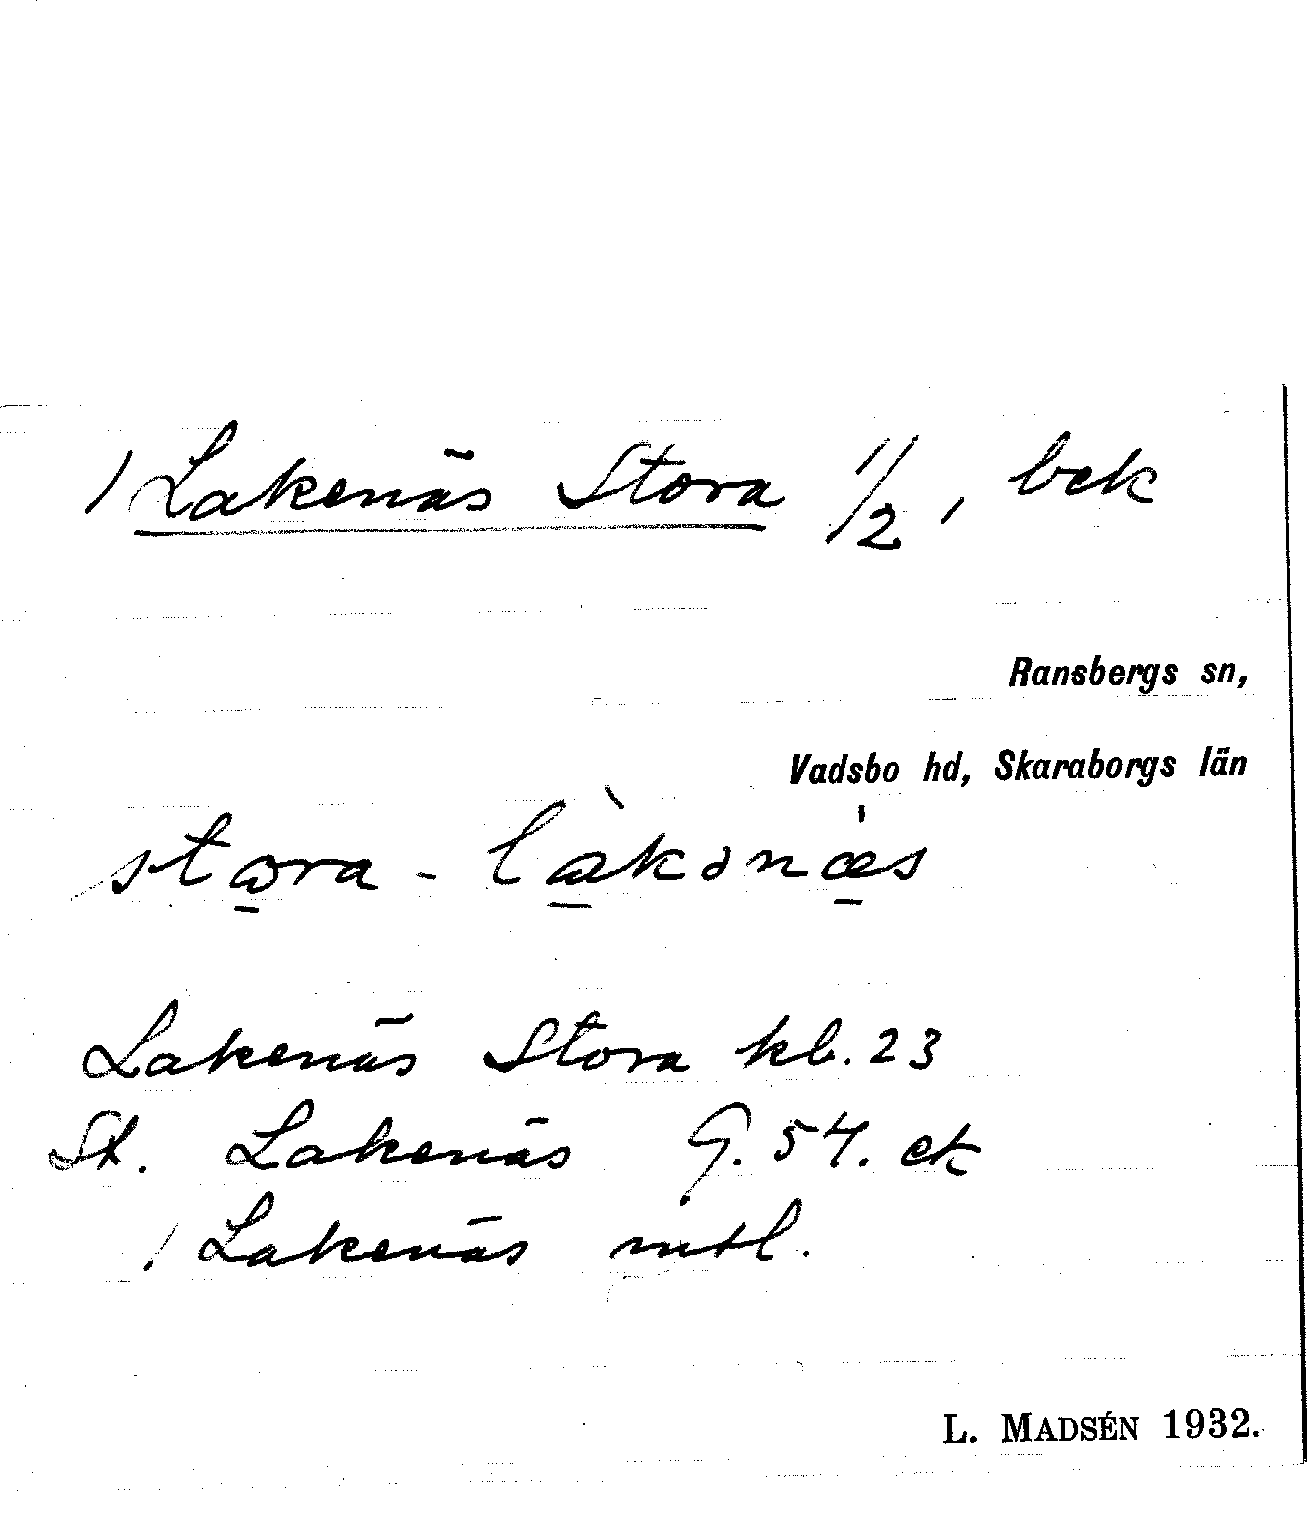 / Lakenäs Stora 1/2, bek
Ransbergs sn,
Vadsbo hd, Skaraborgs län
Lakenäs Stora kb. 23
St. Lakenäs G. 54. ek
/ Lakenäs mtl.
L. MADSÉN 1932.